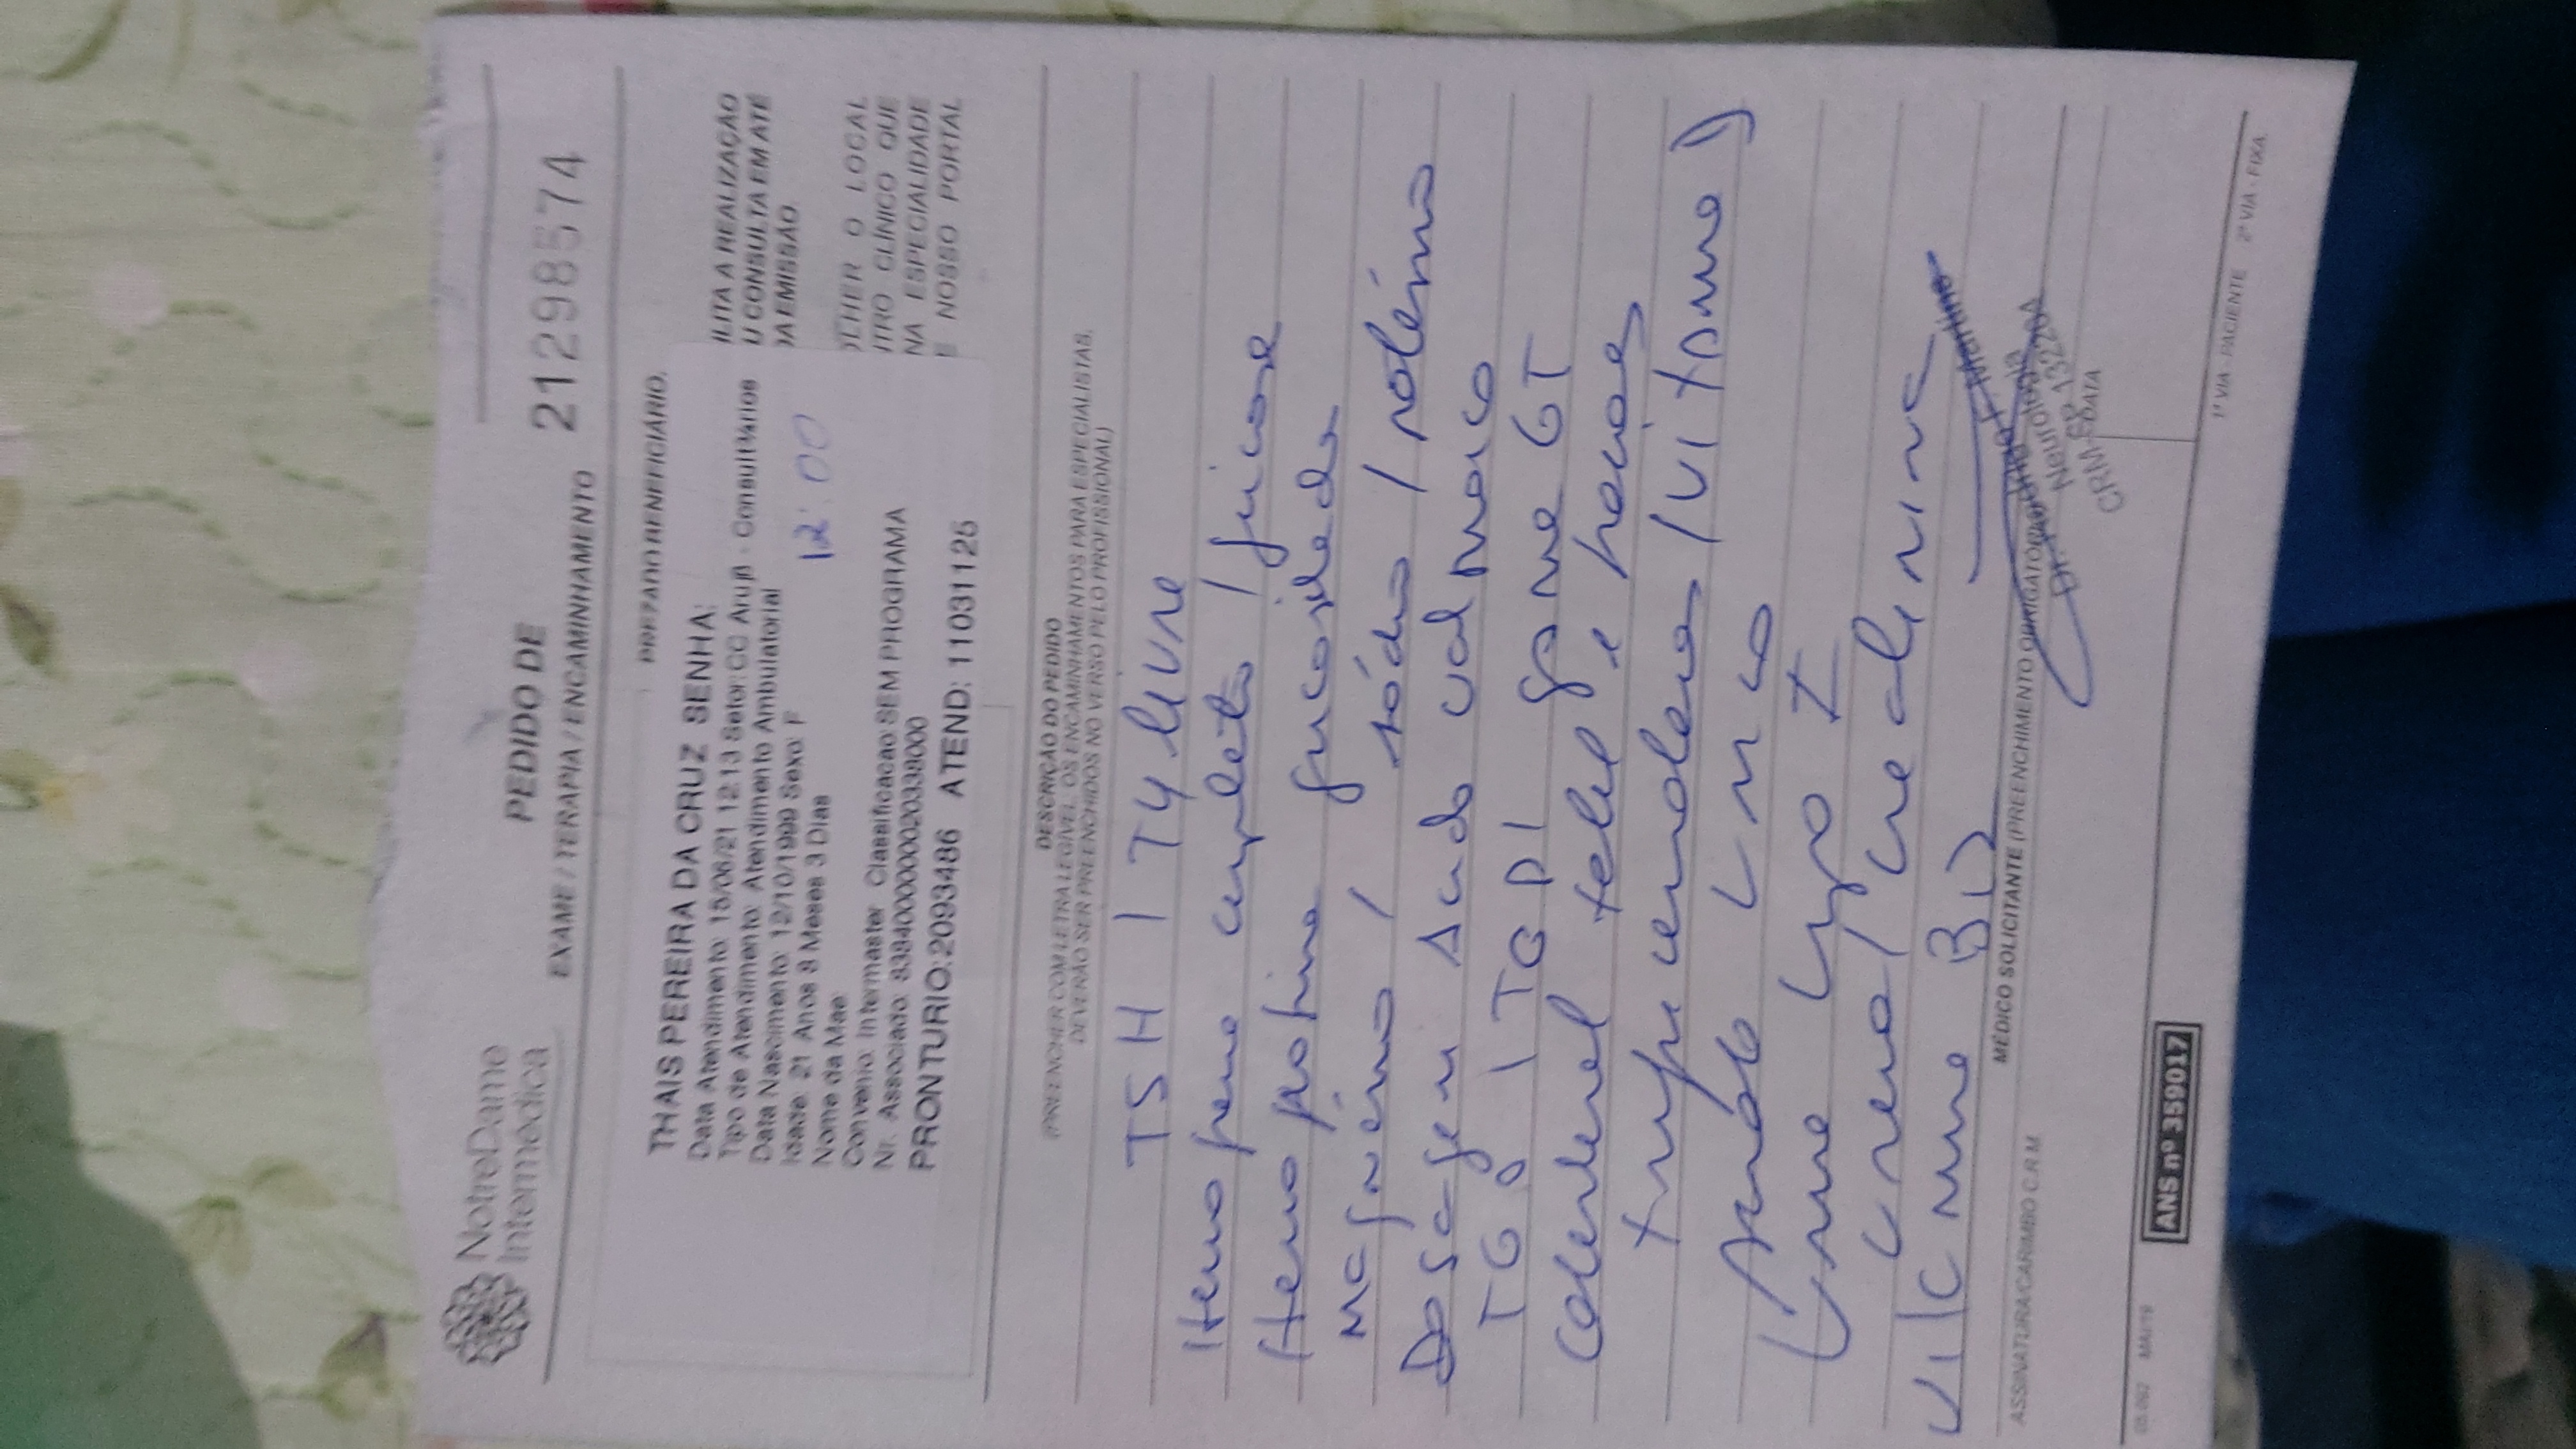 NotreDame
Intermédica
PEDIDO DE
EXAME / TERAPIA / ENCAMINHAMENTO
21298574
PREZADO BENEFICIÁRIO,
THAIS PEREIRA DA CRUZ SENHA:
Data Atendimento: 15/06/21 12:13 Setor: CC Arujß - Consult¾rios
Tipo de Atendimento: Atendimento Ambulatorial
Data Nascimento: 12/10/1999 Sexo: F
Idade: 21 Anos 8 Meses 3 Dias
Nome da Mae:
Convenio: Intermaster Classificacao: SEM PROGRAMA
Nr. Associado: 8384000000020338000
PRONTURIO:2093486 ATEND: 11031125
12:00
ILITA A REALIZAÇÃO
U CONSULTA EM ATÉ
DA EMISSÃO.
OLHER O LOCAL
NTRO CLÍNICO QUE
NA ESPECIALIDADE
E NOSSO PORTAL
DESCRIÇÃO DO PEDIDO
(PREENCHER COM LETRA LEGÍVEL. OS ENCAMINHAMENTOS PARA ESPECIALISTAS,
DEVERÃO SER PREENCHIDOS NO VERSO PELO PROFISSIONAL)
TSH / T4 livre
Hemograma completo / glicose
Hemoglobina glicosilada
Magnésio / sódio / potássio
Dosagem ácido valproico
TGO / TGP / gama GT
Colesterol total e frações
triglicerideos / vitamina D
Ácido úrico
Urina tipo I
ureia / creatinina
Vitamina B12
MÉDICO SOLICITANTE (PREENCHIMENTO OBRIGATÓRIO)
ASSINATURA/CARIMBO C.R.M.
Dr. Rodrigo F. Martins
Neurologia
CRM-SP 132204
DATA
05.092 MAI/19
ANS nº 359017
1ª VIA - PACIENTE 2ª VIA - FIXA